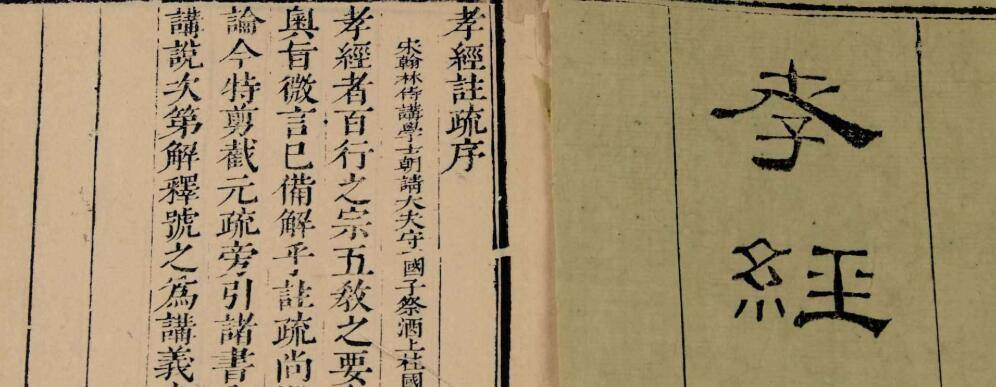 孝經
孝經註疏序
宋翰林侍講學士朝請大夫守國子祭酒上柱國
孝經者百行之宗五敎之要
奧旨微言已備解乎註疏尚
論今特剪截元疏旁引諸書
講說次第解釋號之為講義